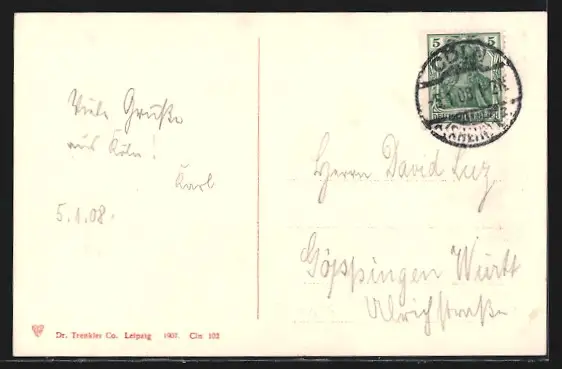 Viele Grüße
aus Köln!
Karl
5.1.08.
Herrn David Luz
Göppingen Württ
Ulrichstraße
5 5
CÖLN
5.1.08
(RHEIN)
Dr. Trenkler Co. Leipzig 1907. Cln 102